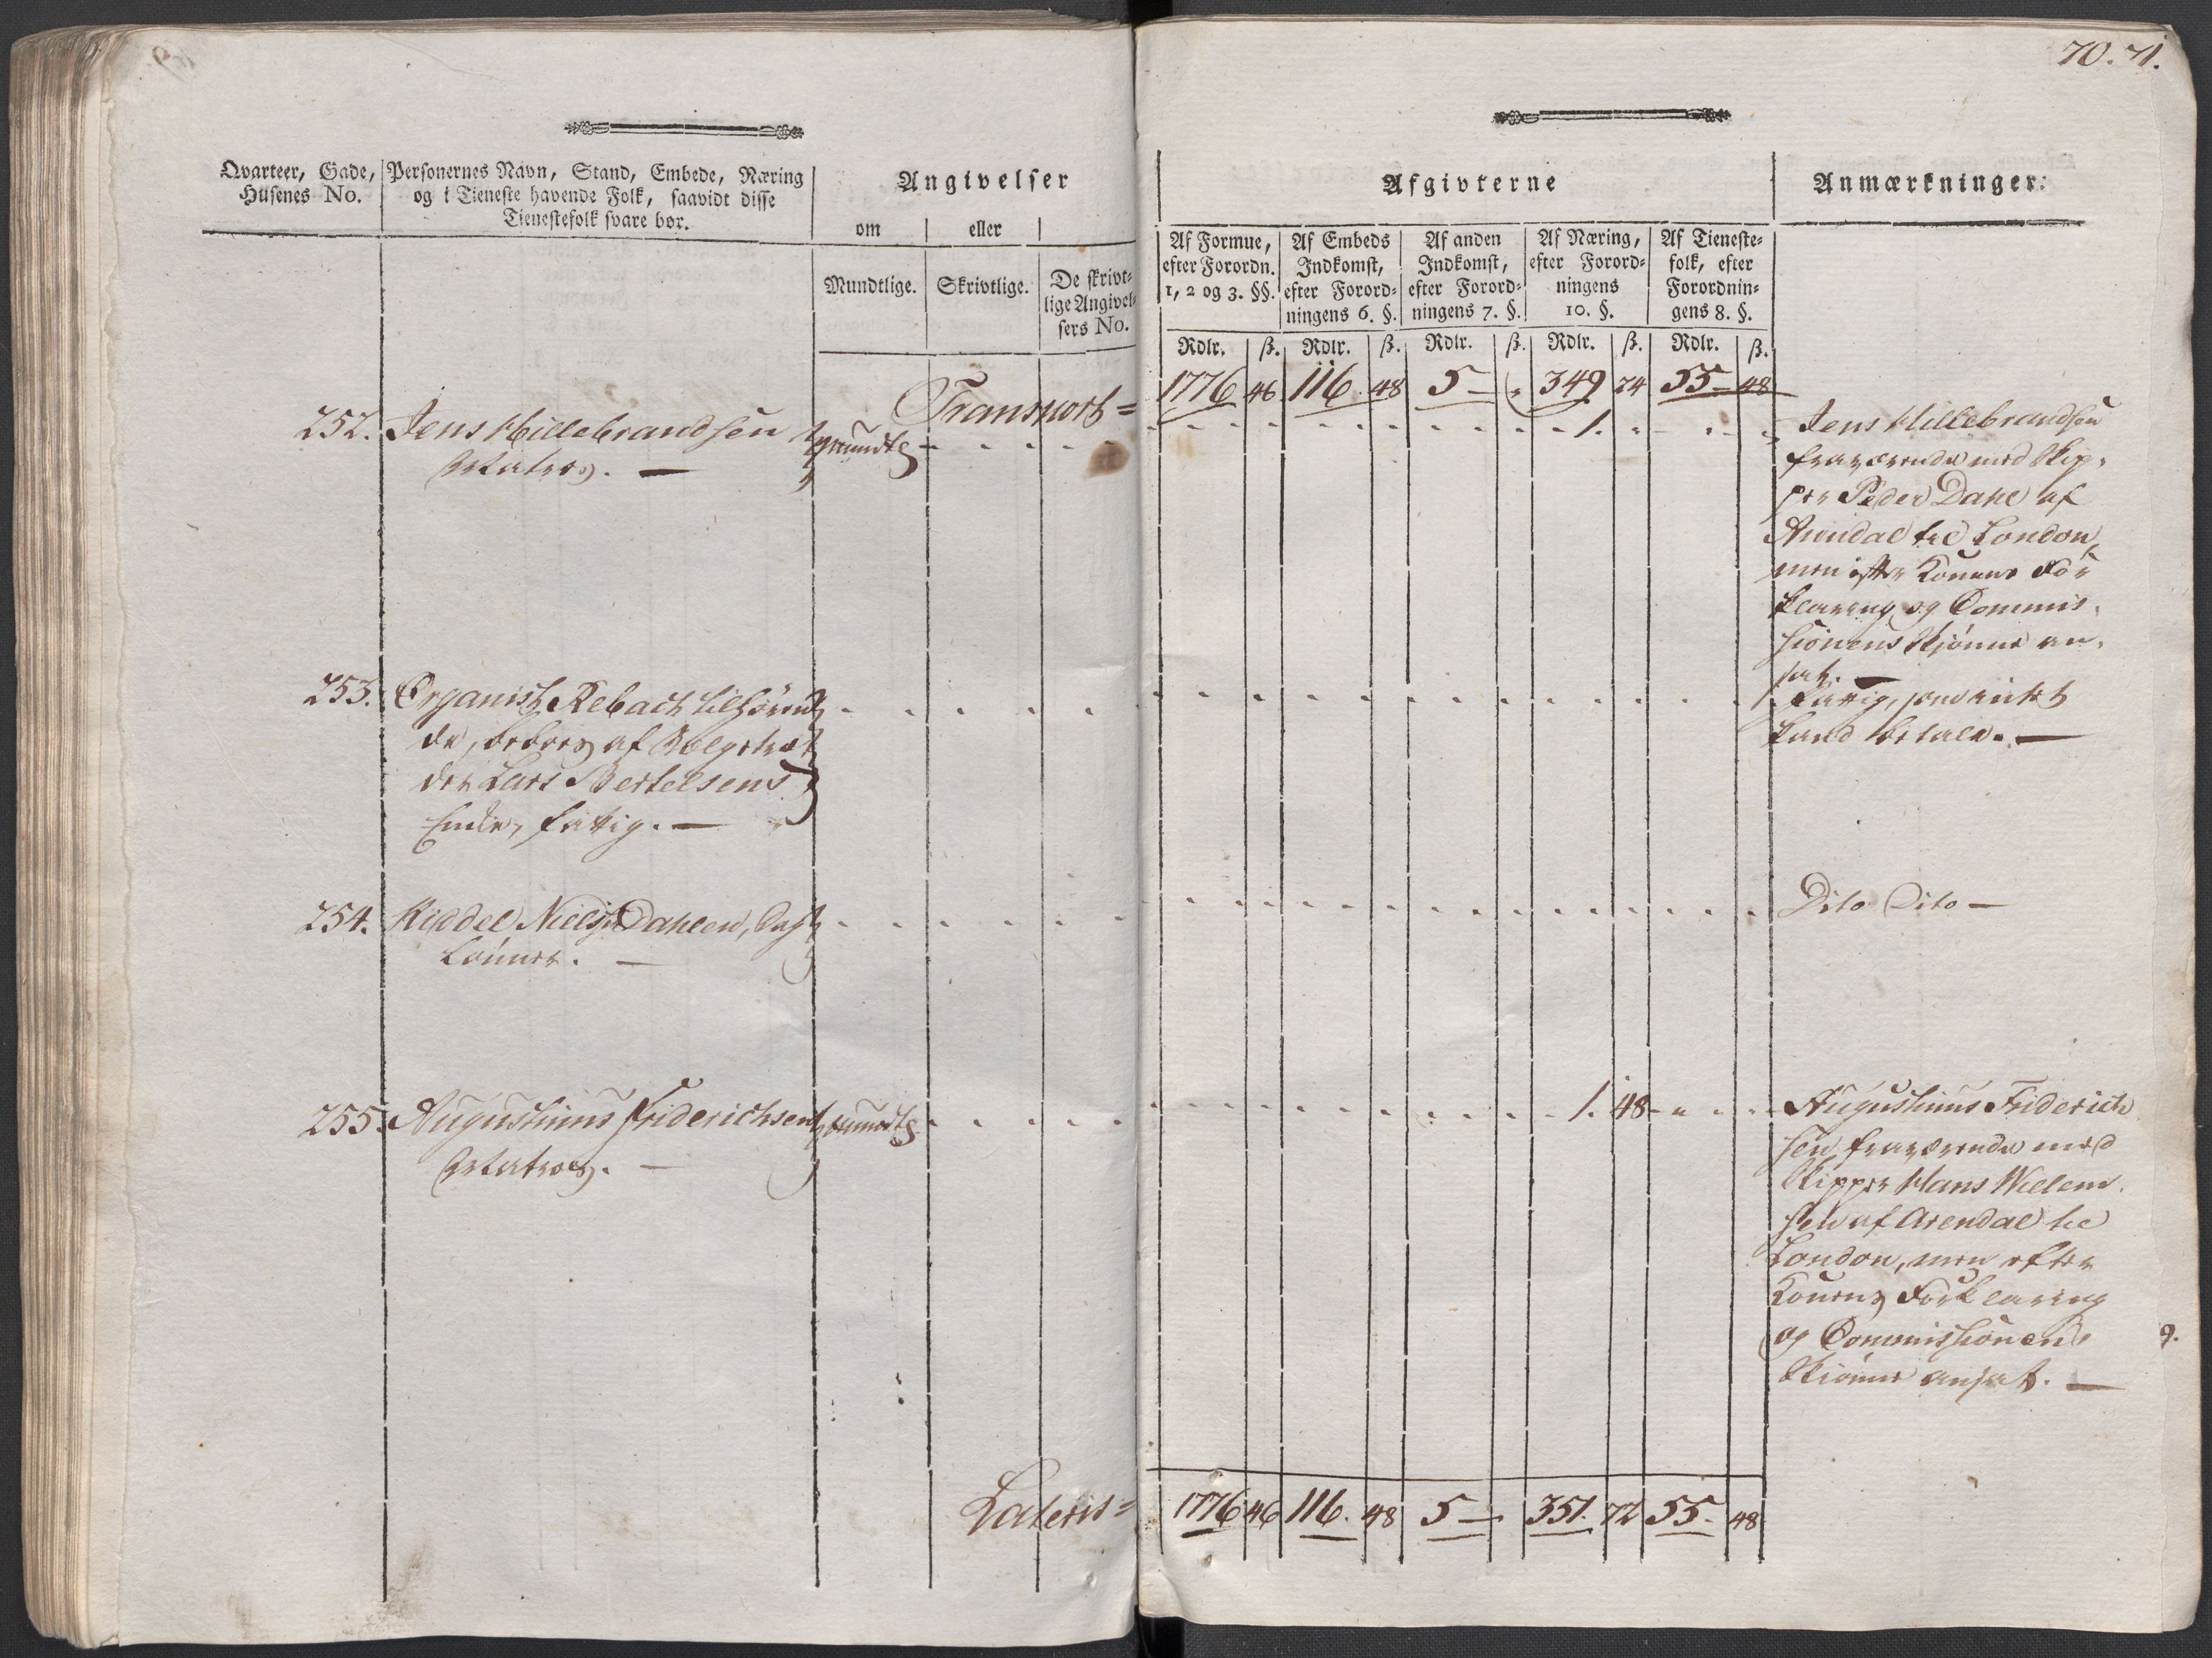 70. 71.
Qvarteer, Gade, Husenes No.
Personernes Navn, Stand, Embede, Næring
og i Tieneste havende Folk, saavidt disse
Tienestefolk svare bør.
Angivelser
om eller
Mundtlige. Skrivtlige. De skrivt=
lige Angivel=
sers No.
Afgivterne
Anmærkninger.
Af Formue,
efter Forordn.
1, 2 og 3. §§.
Af Embeds
Indkomst,
efter Forord=
ningens 6. §.
Af anden
Indkomst,
efter Forord=
ningens 7. §.
Af Næring,
efter Forord=
ningens
10. §.
Af Tieneste=
folk, efter
Forordnin=
gens 8. §.
Rdlr. ß. Rdlr. ß. Rdlr. ß. Rdlr. ß. Rdlr. ß.
Transport= 1776 46 116. 48 5 — 349 24 55 — 48
252. Jens Hillebrandsen
Matros. —
mundtl 1.
Jens Hillebrandsen
fraværende med Skip,
per Peder Dahl af
Arendal til London,
men efter Konens For
klaring og Commis,
sionens Skjønne an,
sat. —
253. Organist Rebach tilhøren
de, beboes af
Lars Bertelsens
Enke, fattig. —
Fattig, som intet
kand betale. —
254. Kiddel Nielsen Dahlen, Dag
Lønner. —
Dito Dito —
255. Augustinus Friderichsen
Matros. —
mundtl 1. 48
Augustinus Friderich
sen fraværende med
Skipper Hans Willum
sen af Arendal til
London, men efter
Konens Forklaring
og Commissionens
Skiønne ansat. —
9.
Lateris= 1776 46 116. 48 5 — 351. 72 55. 48